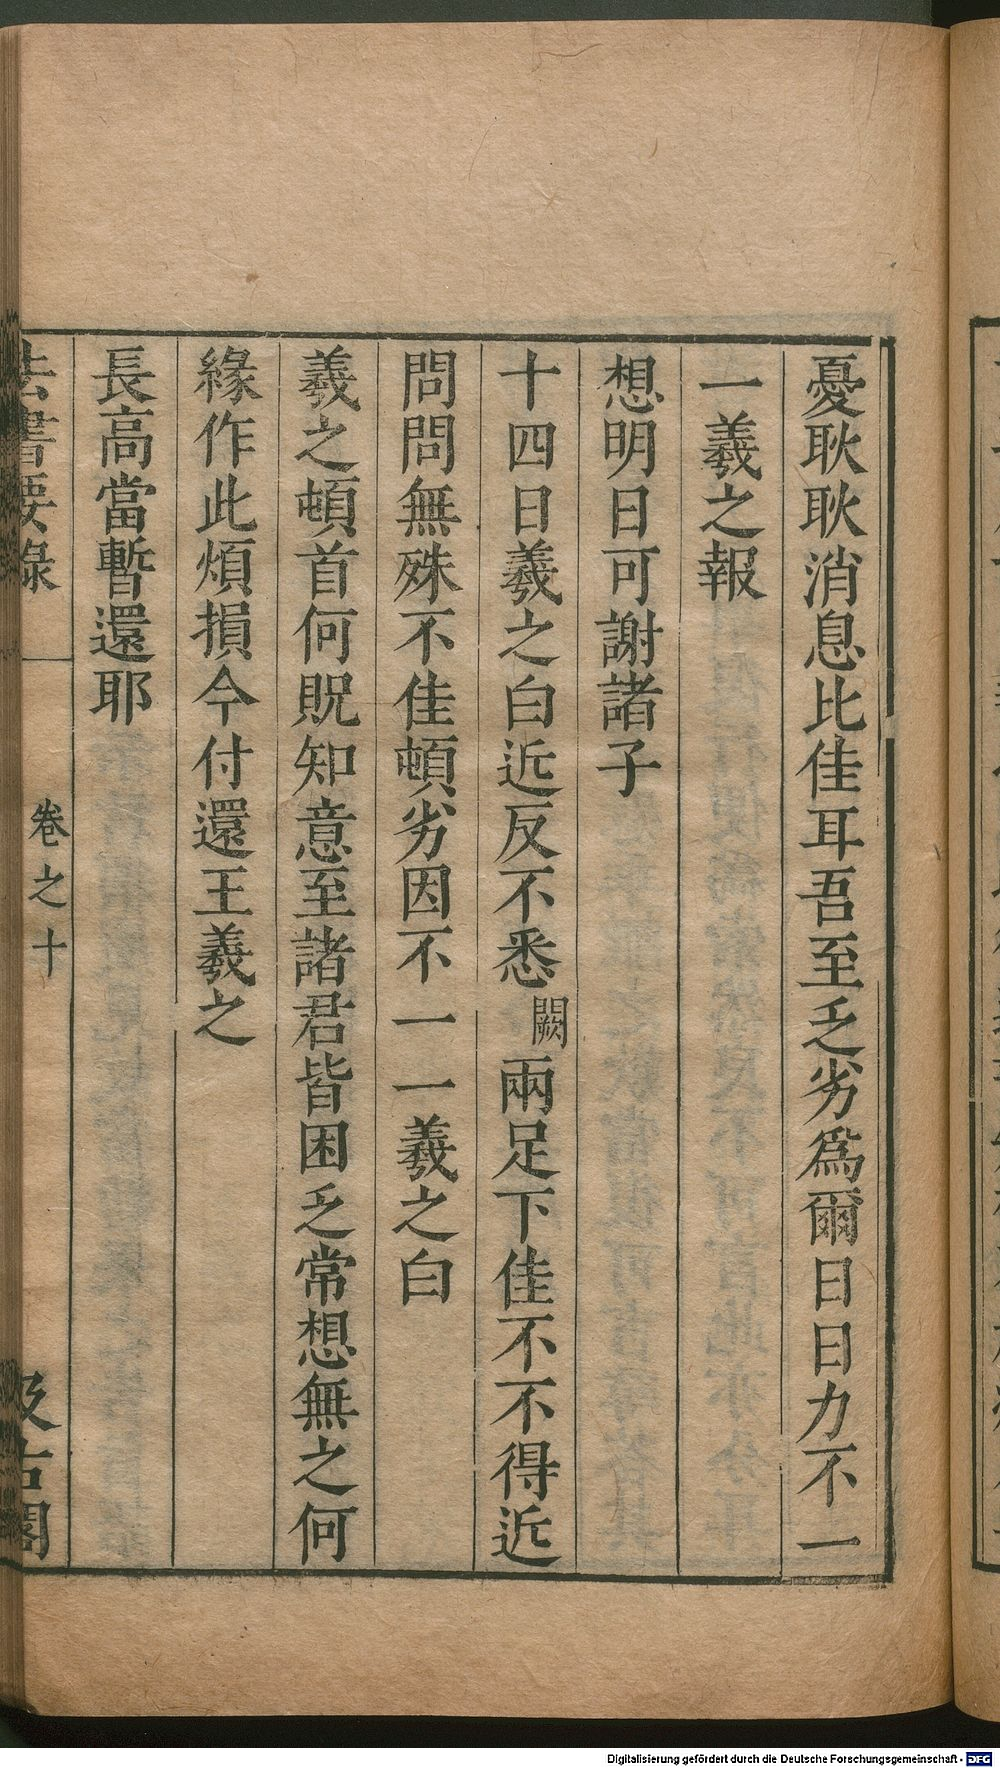 憂耿耿消息比佳耳吾至乏劣爲爾日日力不一
一羲之報
想明日可謝諸子
十四日羲之白近反不悉闕兩足下佳不不得近
問問無殊不佳頓劣因不一一羲之白
羲之頓首何貺知意至諸君皆困乏常想無之何
緣作此煩損今付還王羲之
長高當暫還耶
法書要錄 卷之十 汲古閣
Digitalisierung gefördert durch die Deutsche Forschungsgemeinschaft - DFG